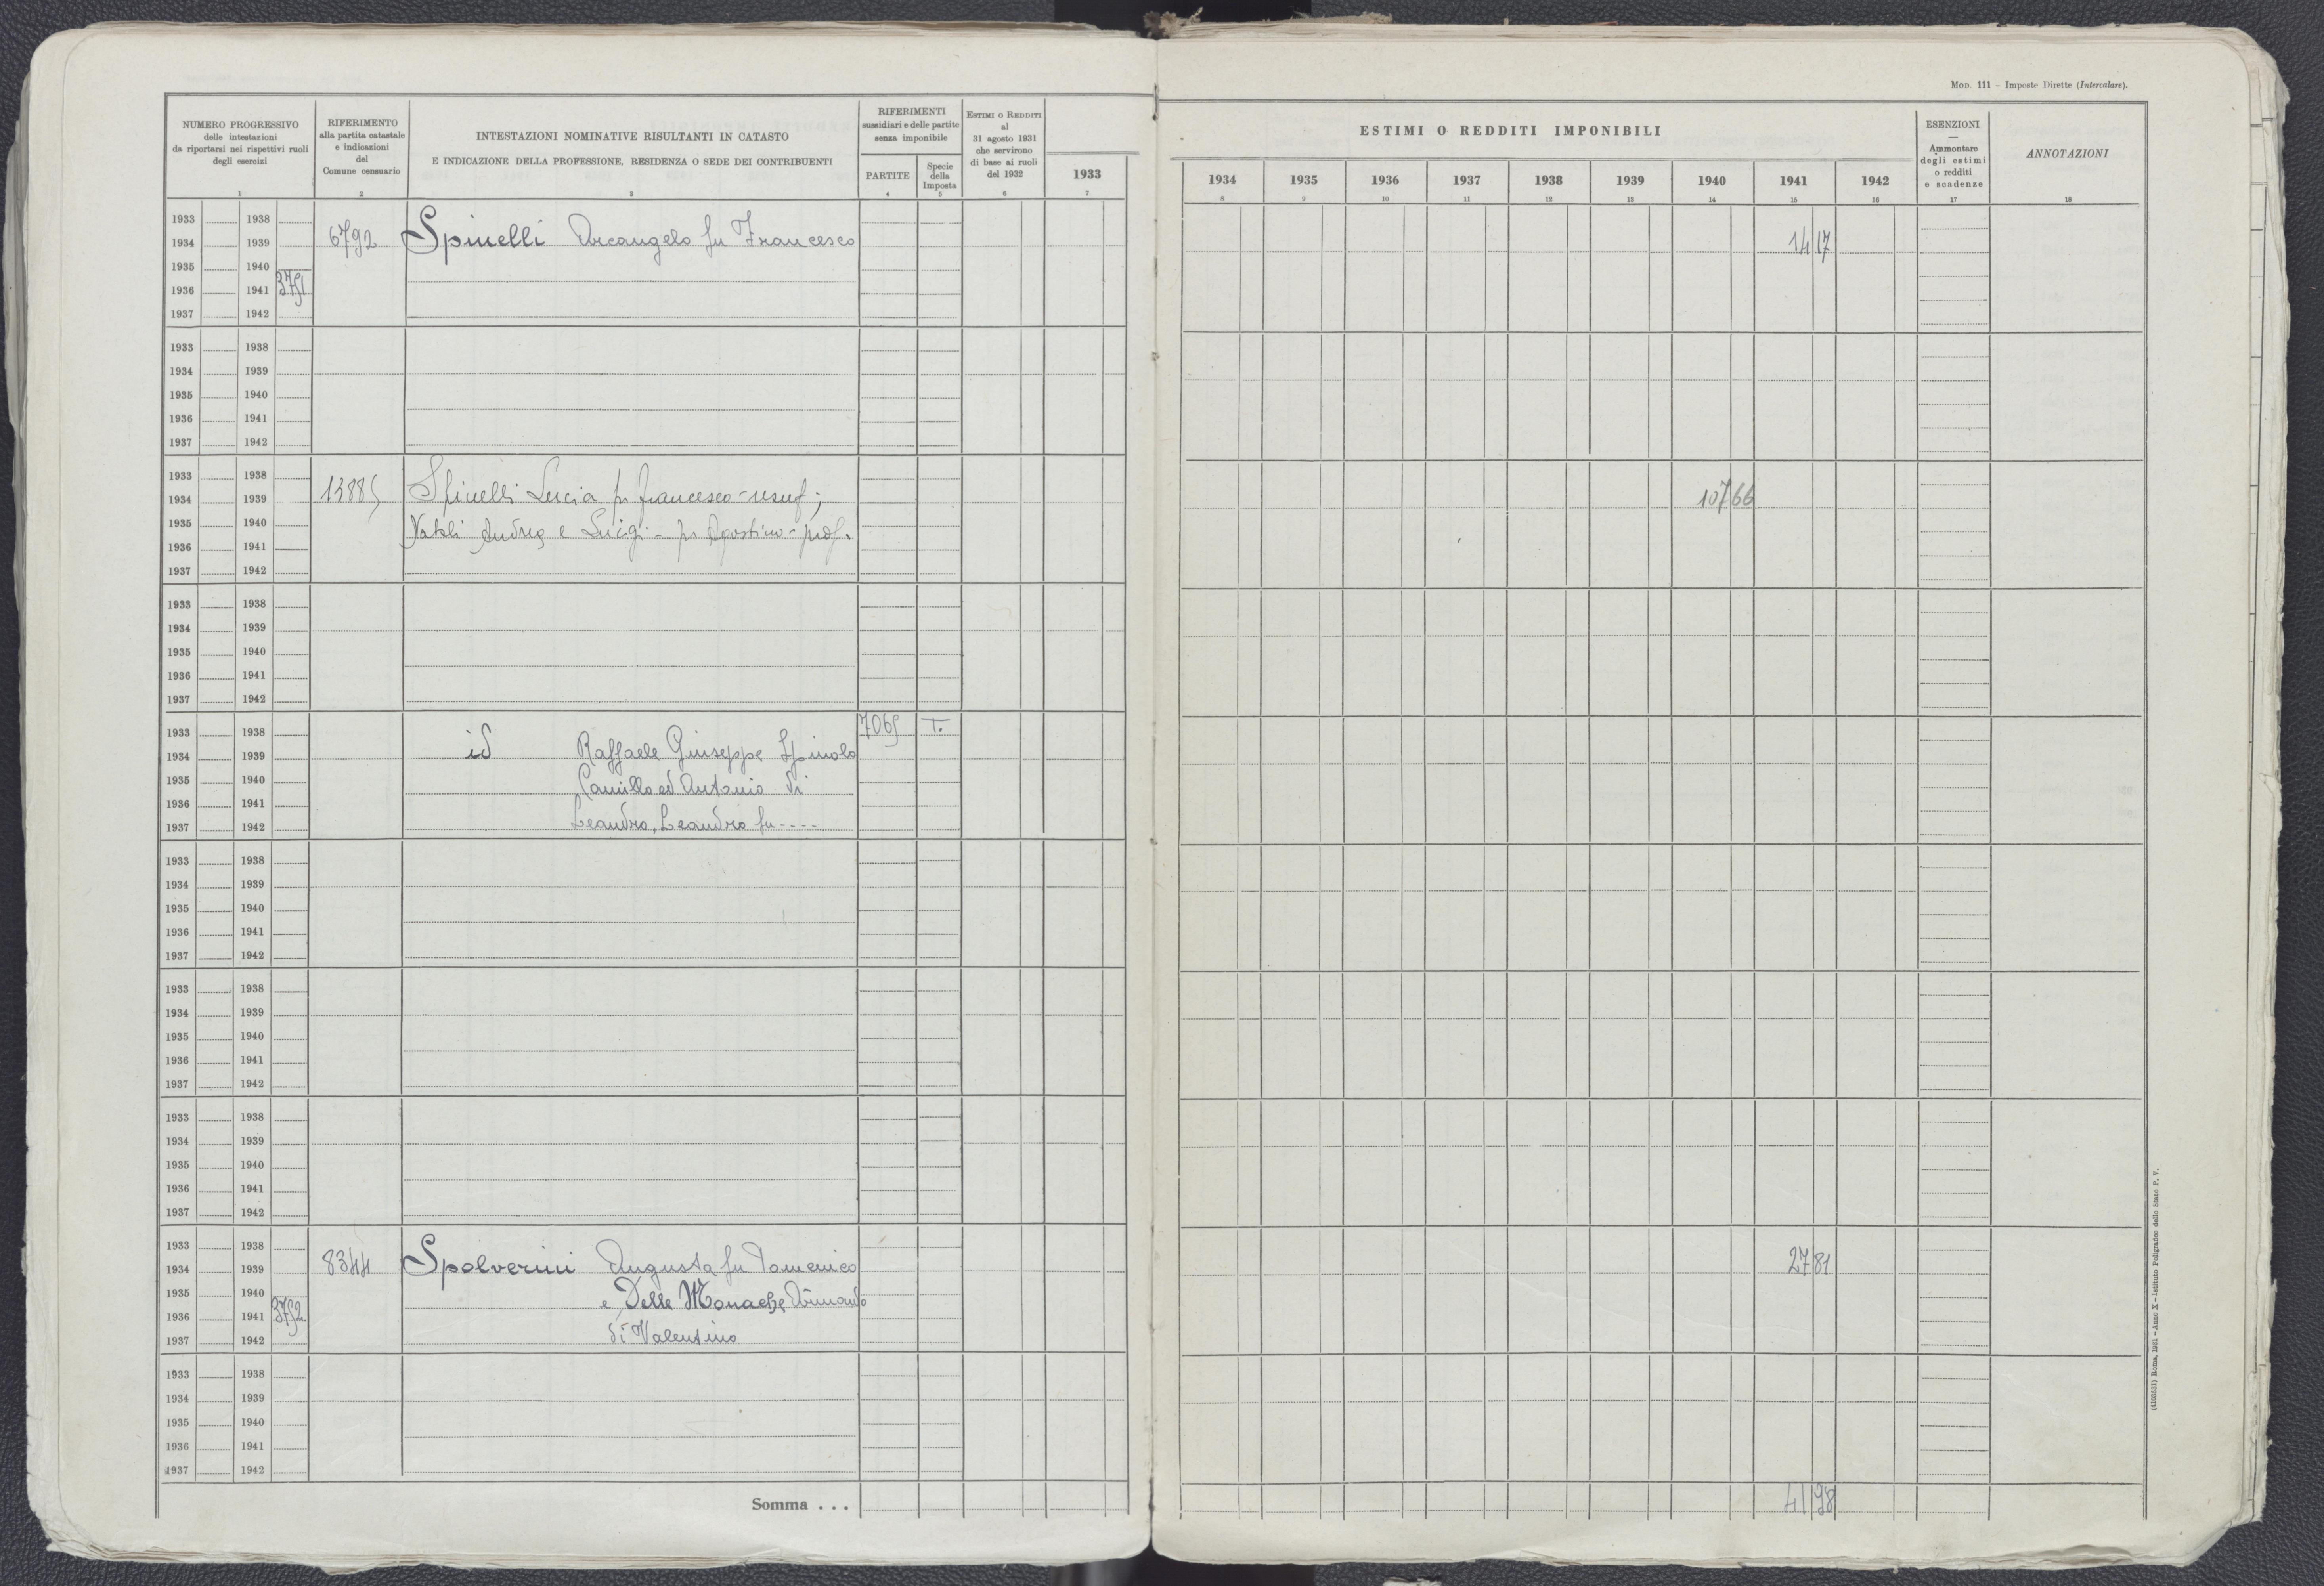 Mod. 111 – Imposte Dirette (Intercalare).
NUMERO PROGRESSIVO
delle intestazioni
da riportarsi nei rispettivi ruoli
degli esercizi
1
RIFERIMENTO
alla partita catastale
e indicazioni
del
Comune censuario
2
INTESTAZIONI NOMINATIVE RISULTANTI IN CATASTO
E INDICAZIONE DELLA PROFESSIONE, RESIDENZA O SEDE DEI CONTRIBUENTI
3
RIFERIMENTI
sussidiari e delle partite
senza imponibile
PARTITE
4
Specie
della
Imposta
5
Estimi o Redditi
al
31 agosto 1931
che servirono
di base ai ruoli
del 1932
6
1933
7
ESTIMI O REDDITI IMPONIBILI
1934 1935 1936 1937 1938 1939 1940 1941 1942
8 9 10 11 12 13 14 15 16
ESENZIONI
—
Ammontare
degli estimi
o redditi
e scadenze
17
ANNOTAZIONI
18
1933 1938
1934 1939 6792 Spinelli Arcangelo fu Francesco 14 17
1935 1940
1936 1941 3751
1937 1942
1933 1938
1934 1939
1935 1940
1936 1941
1937 1942
1933 1938
1934 1939 13885 Spinelli Lucia fu Francesco - usuf.; 107 66
1935 1940 Natali Andrea e Luigi - fu Agostino - prop.
1936 1941
1937 1942
1933 1938
1934 1939
1935 1940
1936 1941
1937 1942
1933 1938 7065 T.
1934 1939 id Raffaele Giuseppe Spinola
1935 1940 Camillo ed Antonio di
1936 1941
1937 1942 Leandro, Leandro fu ----
1933 1938
1934 1939
1935 1940
1936 1941
1937 1942
1933 1938
1934 1939
1935 1940
1936 1941
1937 1942
1933 1938
1934 1939
1935 1940
1936 1941
1937 1942
1933 1938
1934 1939 8344 Spolverini Augusta fu Domenico 27 81
1935 1940 e Delle Monache Armando
1936 1941 3752
1937 1942 di Valentino
1933 1938
1934 1939
1935 1940
1936 1941
1937 1942
Somma . . . 41 98
Roma, 1931 – Anno X – Istituto Poligrafico dello Stato P. V.